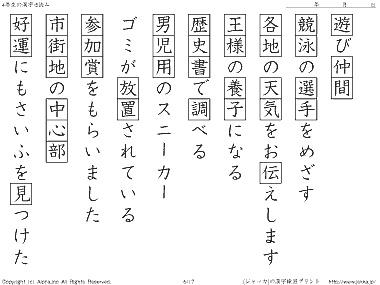 4年生の漢字を読み
年 月 日
遊び仲間
競泳の選手をめざす
各地の天気をお伝えします
王様の養子になる
歴史書で調べる
男児用のスニーカー
ゴミが放置されている
参加賞をもらいました
市街地の中心部
好運にもさいふを見つけた
Copyright (c) Alpha.inc All Rights Reserved.
6/17
(ジャッカ)の漢字練習プリント http://www.jakka.jp/